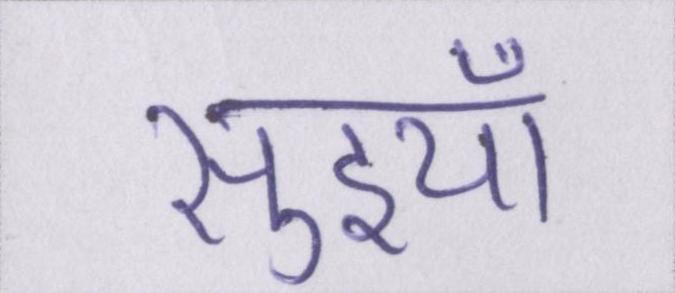 सुइयाँ